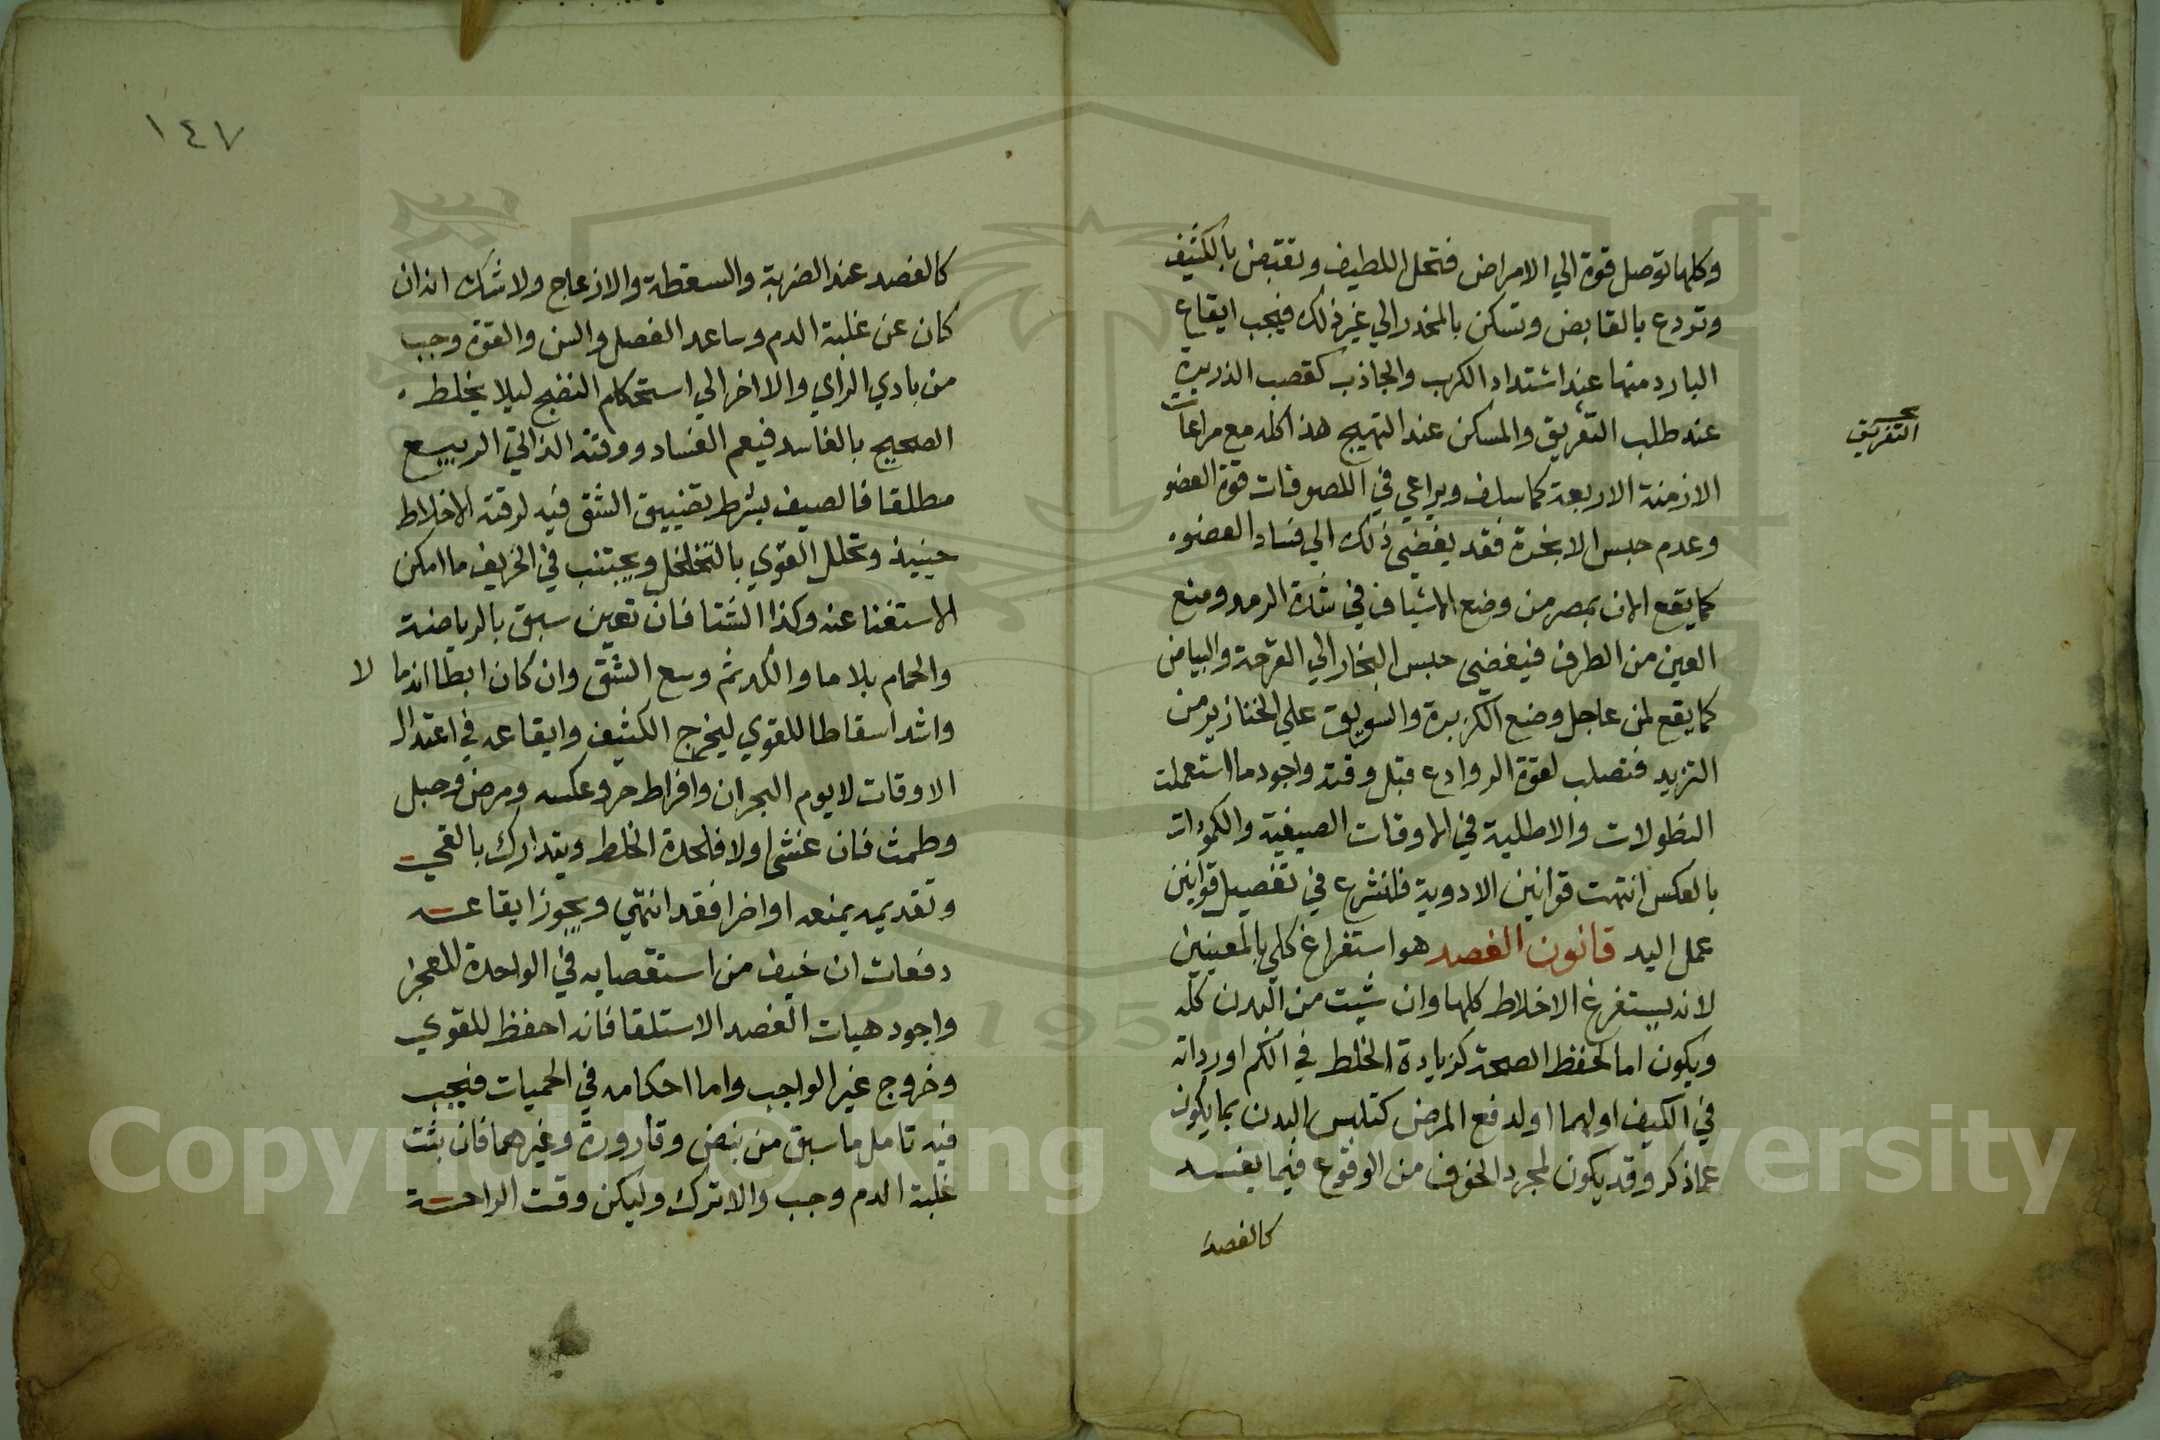 وكلها توصل قوة الي الامراض فتحل اللطيف وتقبض بالكثيف
وتردع بالقابض وتسكن بالمخدر الي غير ذلك فيجب ايقاع
البارد منها عند اشتداد الكرب والجاذب كقصب الذريرة
عند طلب التعريق والمسكن عند التهيج هذا كله مع مراعات
التفريق
الازمنة الاربعة كما سلف ويراعي في اللصوقات قوة العضو
وعدم حبس الابخرة فقد يفضي ذلك الي فساد العضو
كما يقع الان بمصر من وضع الاشياف في شدة الرمد ومنع
العين من الطرف فيفضي حبس البخار الي القرحة والبياض
كما يقع لمن عاجل وضع الكزبرة والسويق علي الخنازير من
التزيد فتصلب لقوة الروادع قبل وقته واجود ما استعملت
النطولات والاطلية في الاوقات الصيفية والكمودات
بالعكس انتهت قوانين الادوية فلنشرع في تفصيل قوانين
عمل اليد قانون الفصد هو استفراغ كلي بالمعنيين
لانه يستفرغ الاخلاط كلها وان شيت من البدن كله
ويكون اما لحفظ الصحة كزيادة الخلط في الكم اورداته
في الكيف اولهما اولدفع المرض كتلبس البدن بما يكون
عما ذكر وقد يكون لمجرد الخوف من الوقوع فيما يفسد
كالفصد
١٤٧
كالفصد عند الضربة والسقطة والازعاج ولا شك انه ان
كان عن غلبة الدم وساعد الفصل والسن والقوة وجب
من بادي الراي والا اخر الي استحكام النضج ليلا يخلط
الصحيح بالفاسد فيعم الفساد ووقته الذاتي الربيع
مطلقا فالصيف بشرط تضييق الشق فيه لرقة الاخلاط
حينية وتحلل القوي بالتخلخل ويجتنب في الخريف ما امكن
الاستغنا عنه وكذا الشتا فان تعين سبق بالرياضة
والحمام بلا ما والكد ثم وسع الشق وان كان ابطا اندما لا
واشد اسقاطا للقوي ليخرج الكثيف وايقاعه في اعتدال
الاوقات لا يوم البحران وافراط حر وعكسه ومرض وحبل
وطمث فان غشي اولا فلحدة الخلط ويتدارك بالقي
وتقديمه يمنعه او اخرا فقد انتهي ويجوز ايقاعه
دفعات ان خيف من استقصايه في الواحدة للعجز
واجود هيات الفصد الاستلقا فانه احفظ للقوي
وخروج غير الواجب واما احكامه في الحميات فيجب
فيه تامل ما سبق من نبض وقارورة وغيرهما فان بثت
غلبة الدم وجب والا ترك وليكن وقت الراحة